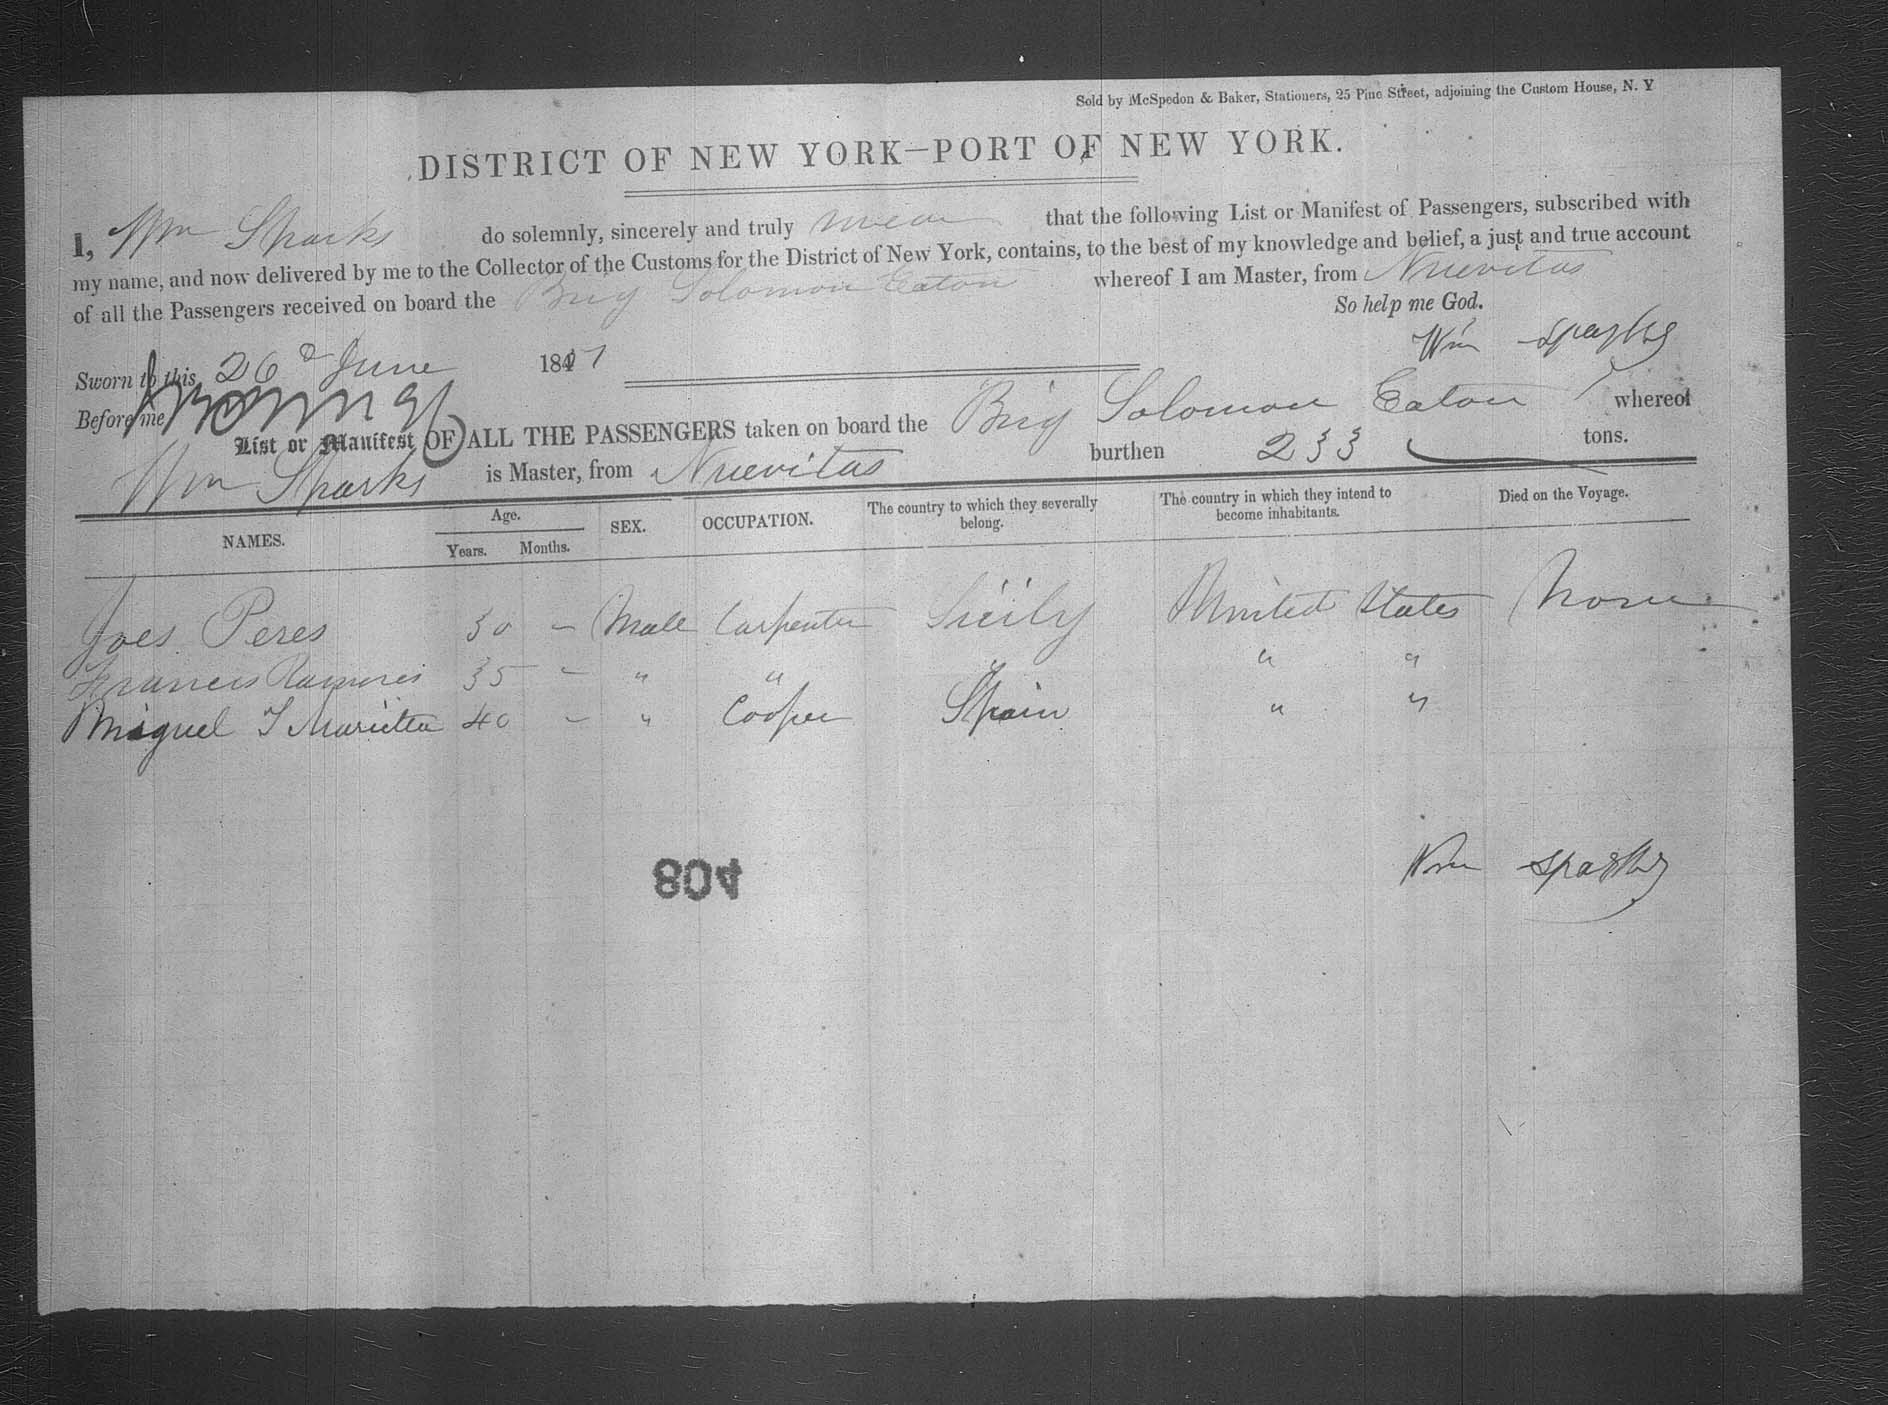 Sold by McSpedon & Baker, Stationers, 25 Pine Street, adjoining the Custom House, N. Y
DISTRICT OF NEW YORK—PORT OF NEW YORK.
I, Wm Sparks do solemnly, sincerely and truly swear that the following List or Manifest of Passengers, subscribed with
my name, and now delivered by me to the Collector of the Customs for the District of New York, contains, to the best of my knowledge and belief, a just and true account
of all the Passengers received on board the Brig Solomon Eaton whereof I am Master, from Nuevitas
So help me God.
Sworn to this 26 June 1847
Wm Sparks
Before me
List or Manifest OF ALL THE PASSENGERS taken on board the Brig Solomon Eaton whereof
Wm Sparks is Master, from Nuevitas burthen 233 tons.
NAMES. Age. Years. Months. SEX. OCCUPATION. The country to which they severally belong. The country in which they intend to become inhabitants. Died on the Voyage.
Joes Peres 30 – Male Carpenter Sicily United States None
Francis 35 – " " " " "
Miguel 40 – " Cooper Spain " "
804
Wm Sparks